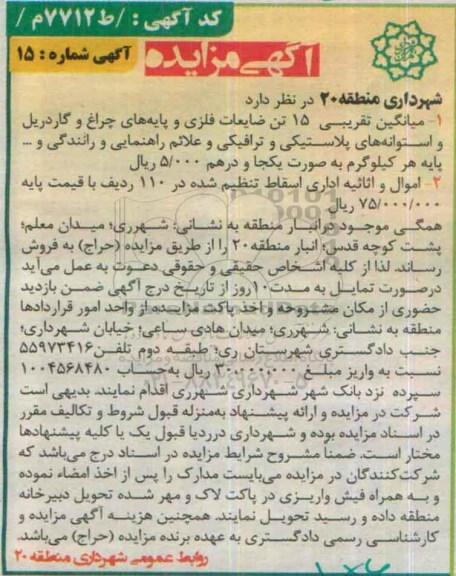 کد آگهی : /ط۷۷۱۲م /
آگهی مزایده
آگهی شماره : ۱۵
شهرداری منطقه۲۰ در نظر دارد
۱- میانگین تقریبی ۱۵ تن ضایعات فلزی و پایه‌های چراغ و گاردریل
و استوانه‌های پلاستیکی و ترافیکی و علائم راهنمایی و رانندگی و ...
پایه هر کیلوگرم به صورت یکجا و درهم ۵/۰۰۰ ریال
۲- اموال و اثاثیه اداری اسقاط تنظیم شده در ۱۱۰ ردیف با قیمت پایه
۷۵/۰۰۰/۰۰۰ ریال
همگی موجود در انبار منطقه به نشانی: شهرری؛ میدان معلم؛
پشت کوچه قدس؛ انبار منطقه ۲۰ را از طریق مزایده (حراج) به فروش
رساند. لذا از کلیه اشخاص حقیقی و حقوقی دعوت به عمل می‌آید
درصورت تمایل به مدت۱۰روز از تاریخ درج آگهی ضمن بازدید
حضوری از مکان مشروحه و اخذ پاکت مزایده از واحد امور قراردادها
منطقه به نشانی: شهرری؛ میدان هادی ساعی؛ خیابان شهرداری؛
جنب دادگستری شهرستان ری؛ طبقه دوم تلفن۵۵۹۷۳۴۱۶
نسبت به واریز مبلغ ۳۰۰۰۰۰۰۰ ریال به‌حساب ۱۰۰۴۵۶۸۴۸۰
سپرده نزد بانک شهر شهرداری شهرری اقدام نمایند. بدیهی است
شرکت در مزایده و ارائه پیشنهاد به‌منزله قبول شروط و تکالیف مقرر
در اسناد مزایده بوده و شهرداری درردیا قبول یک یا کلیه پیشنهادها
مختار است. ضمنا مشروح شرایط مزایده در اسناد درج می‌باشد که
شرکت‌کنندگان در مزایده می‌بایست مدارک را پس از اخذ امضاء نموده
و به همراه فیش واریزی در پاکت لاک و مهر شده تحویل دبیرخانه
منطقه داده و رسید تحویل نمایند. همچنین هزینه آگهی مزایده و
کارشناسی رسمی دادگستری به عهده برنده مزایده (حراج) می‌باشد.
روابط عمومی شهرداری منطقه ۲۰